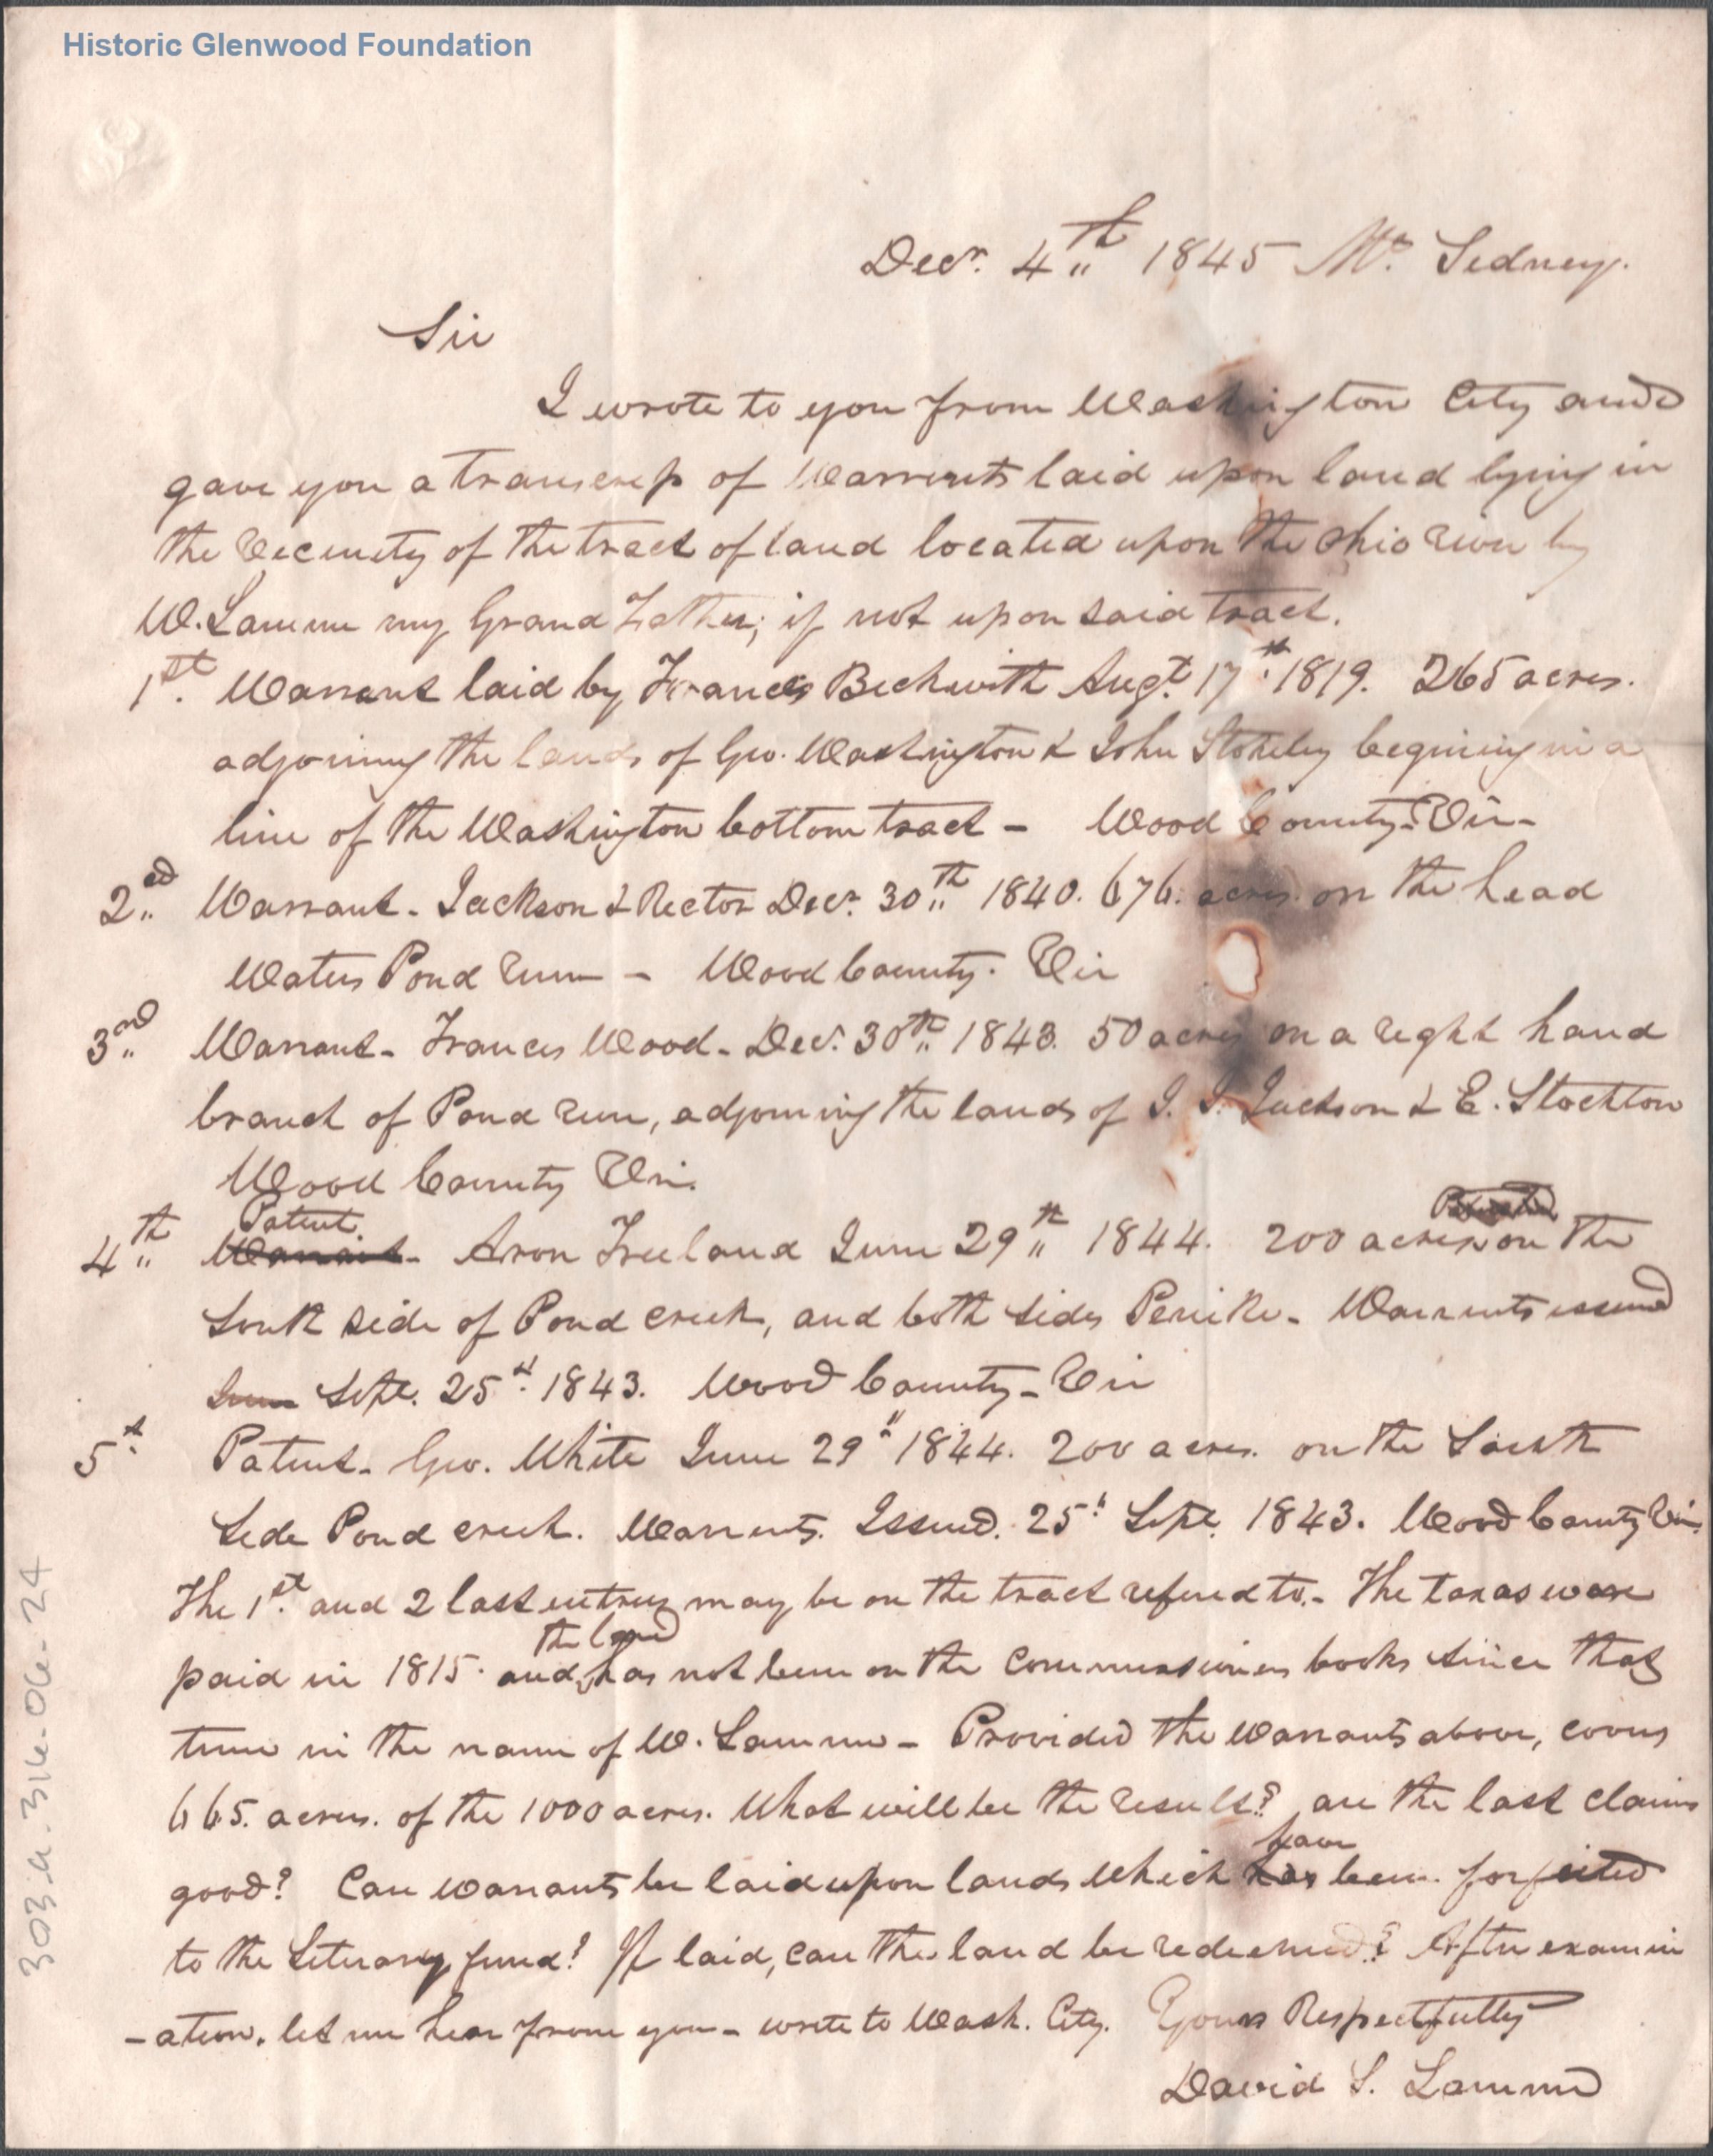 Historic Glenwood Foundation
Decr. 4th 1845 Mt. Sidney.
Sir
I wrote to you from Washington City and
gave you a transcrip of Warrents laid upon land lying in
the vicinity of the tract of land located upon the Ohio River by
W. Lamme my Grand Father; if not upon said tract.
1st. Warrant laid by Francis Beckwith Augt. 17th. 1819. 265 acres.
adjoining the lands of Geo. Washington & John Stokeley begining in a
line of the Washington bottom tract - Wood County - Vir -
2ed Warrant - Jackson & Rector Decr. 30th 1840. 676. acres. on the head
Waters Pond Run - Wood County. Vir
3rd Warrant - Frances Wood - Decr. 30th 1843. 50 acres on a right hand
branch of Pond Run, adjoining the lands of J. J. Jackson & E. Stockton
Wood County Vir.
Patent.
4th Warrant - Aron Freeland June 29th 1844. 200 acres on the
South side of Pond creek, and both sides - Warrents issued
June Sept. 25th. 1843. Wood County - Vir
5th. Patent - Geo. White June 29th 1844. 200 acres. on the South
Side Pond creek. Warrents. Issued. 25th. Sept. 1843. Wood County Vir.
The 1st. and 2 last entrys may be on the tract refered to. - The taxas ware
the land
paid in 1815. and has not been on the Commissioners books since that
time in the name of W. Lamme - Provided the Warrants above, covers
665. acres. of the 1000 acres. What will be the result? are the last claims
have
good? Can warrants be laid upon lands which has been. forfeited
to the Literary fund? If laid, can the land be redeemed? After examin
-ation. let me hear from you - write to Wash. City. Yours Respectfully
David S. Lamme
303.a.316-06-24